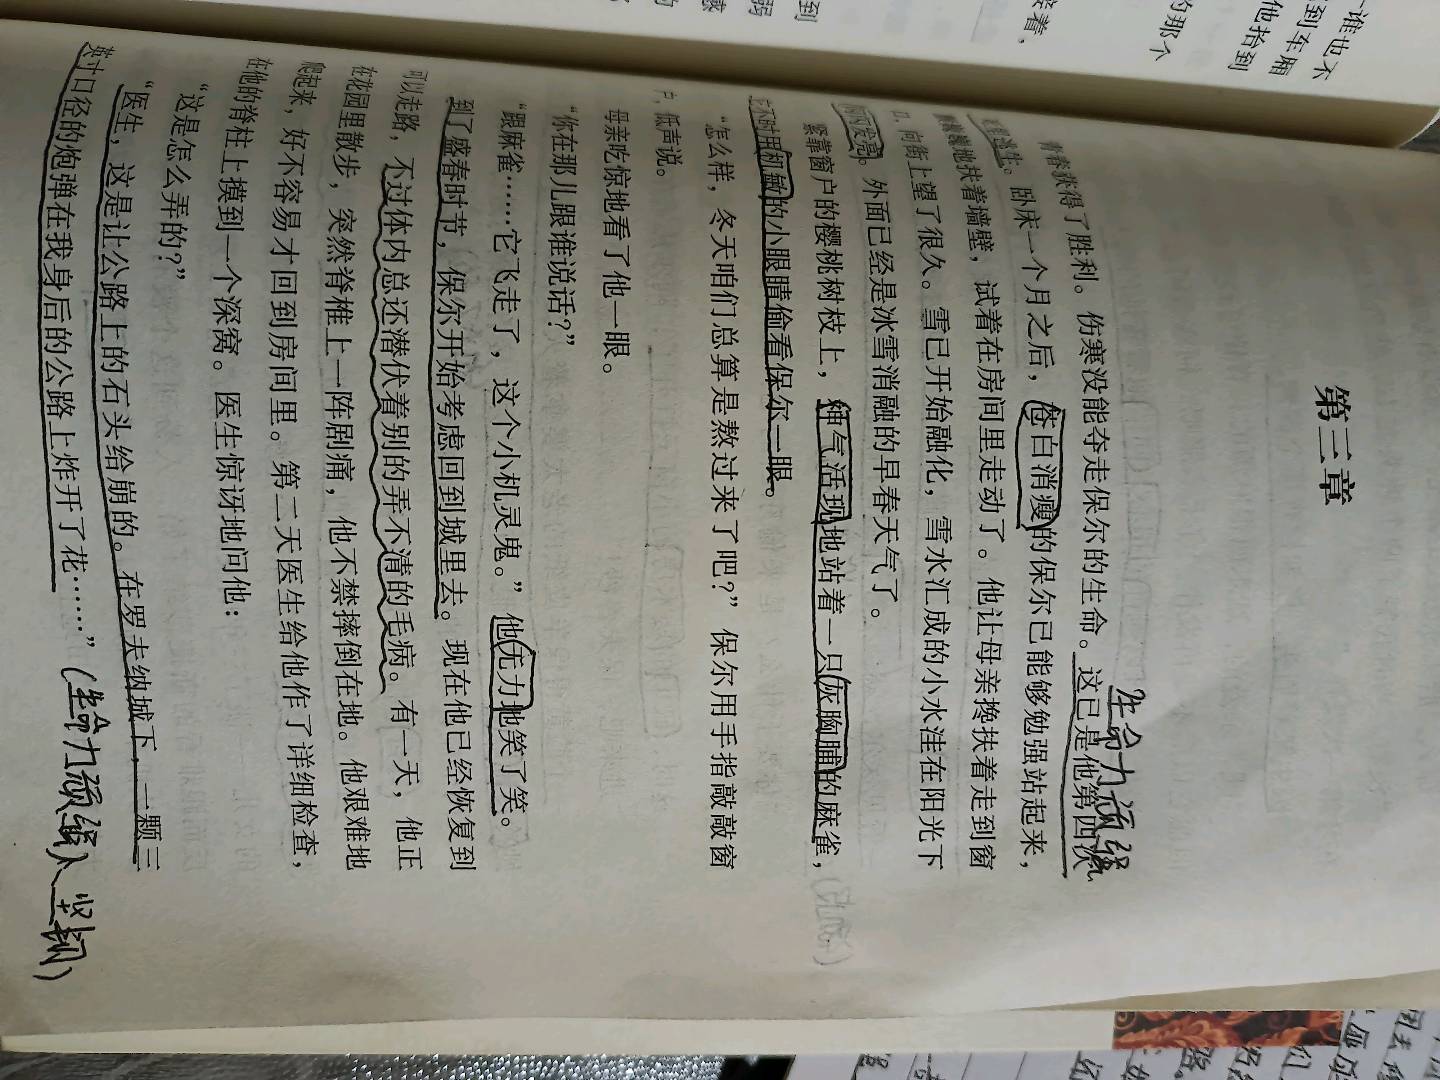 第三章
生命力顽强
青春获得了胜利。伤寒没能夺走保尔的生命。这已是他第四次
死里逃生。卧床一个月之后，苍白消瘦的保尔已能够勉强站起来，
颤巍巍地扶着墙壁，试着在房间里走动了。他让母亲搀扶着走到窗
口，向街上望了很久。雪已开始融化，雪水汇成的小水洼在阳光下
闪闪发亮。外面已经是冰雪消融的早春天气了。
紧靠窗户的樱桃树枝上，神气活现地站着一只灰胸脯的麻雀，
正不时用机敏的小眼睛偷看保尔一眼。
“怎么样，冬天咱们总算是熬过来了吧？”保尔用手指敲敲窗
户，低声说。
母亲吃惊地看了他一眼。
“你在那儿跟谁说话？”
“跟麻雀……它飞走了，这个小机灵鬼。”他无力地笑了笑。
到了盛春时节，保尔开始考虑回到城里去。现在他已经恢复到
可以走路，不过体内总还潜伏着别的弄不清的毛病。有一天，他正
在花园里散步，突然脊椎上一阵剧痛，他不禁摔倒在地。他艰难地
爬起来，好不容易才回到房间里。第二天医生给他作了详细检查，
在他的脊柱上摸到一个深窝。医生惊讶地问他：
“这是怎么弄的？”
“医生，这是让公路上的石头给崩的。在罗夫纳城下，一颗三
英寸口径的炮弹在我身后的公路上炸开了花……”（生命力顽强、坚韧）
谁也不
到车厢
他抬到
的那个
着，
到